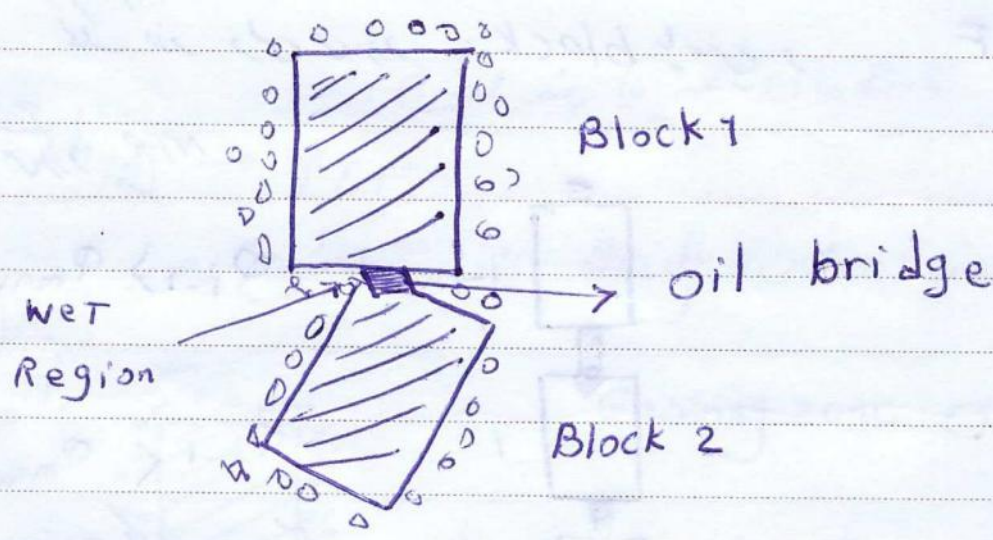 Block 1
oil bridge
WeT
Region
Block 2